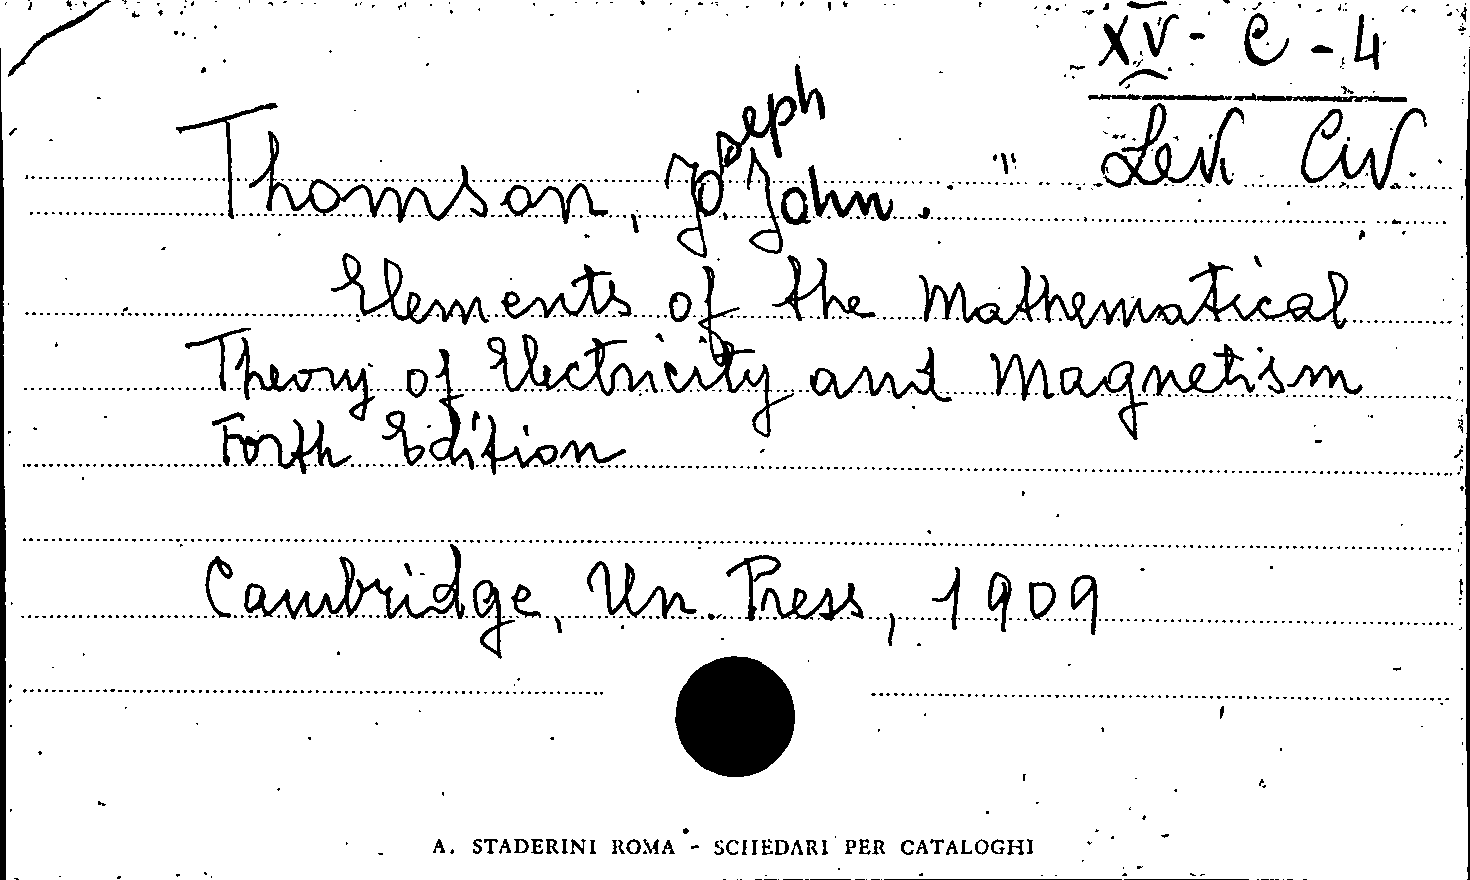 XV - C - 4
Lev Civ.
Thomson, Joseph John.
Elements of the Mathematical
Theory of Electricity and Magnetism
Forth Edition
Cambridge, Un. Press, 1909
A. STADERINI ROMA - SCHEDARI PER CATALOGHI